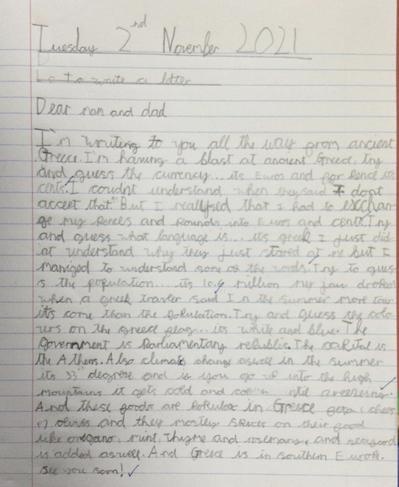 Tuesday 2nd November 2021
Lo To write a letter
Dear mom and dad
I'm writing to you all the way from ancient
Greece. I'm having a blast at ancient Greece. Try
and guess the currency... its Euros and for Pence is
cents. I couldnt understand when they said I dont
accept that" But I reallysed that I had to exchan-
ge my Pences and Pounds into Euros and cents. Try
and guess what language is... its greek I just did
nt understand why they just stared at me but I
managed to understand some of the words. Try to gues
is the population... its 10.4 million my jaw droped
when a greek travler said I n the summer more tour
its come than the Population. Try and guess the colo
urs on the Greece flag... its white and blue. The
Government is Parliamentary republic. The capital is
the Athens. Also climate change aswell in the summer
its 33° degrese and is you go up into the high
mountains it gets cold and until
And these foods are Popular in Greece feta chees
olives and they mostly on their food
like oregano, mint, Thyme and rosemary, and
is added aswell. And Grece is in southern Europe.
see you soon!